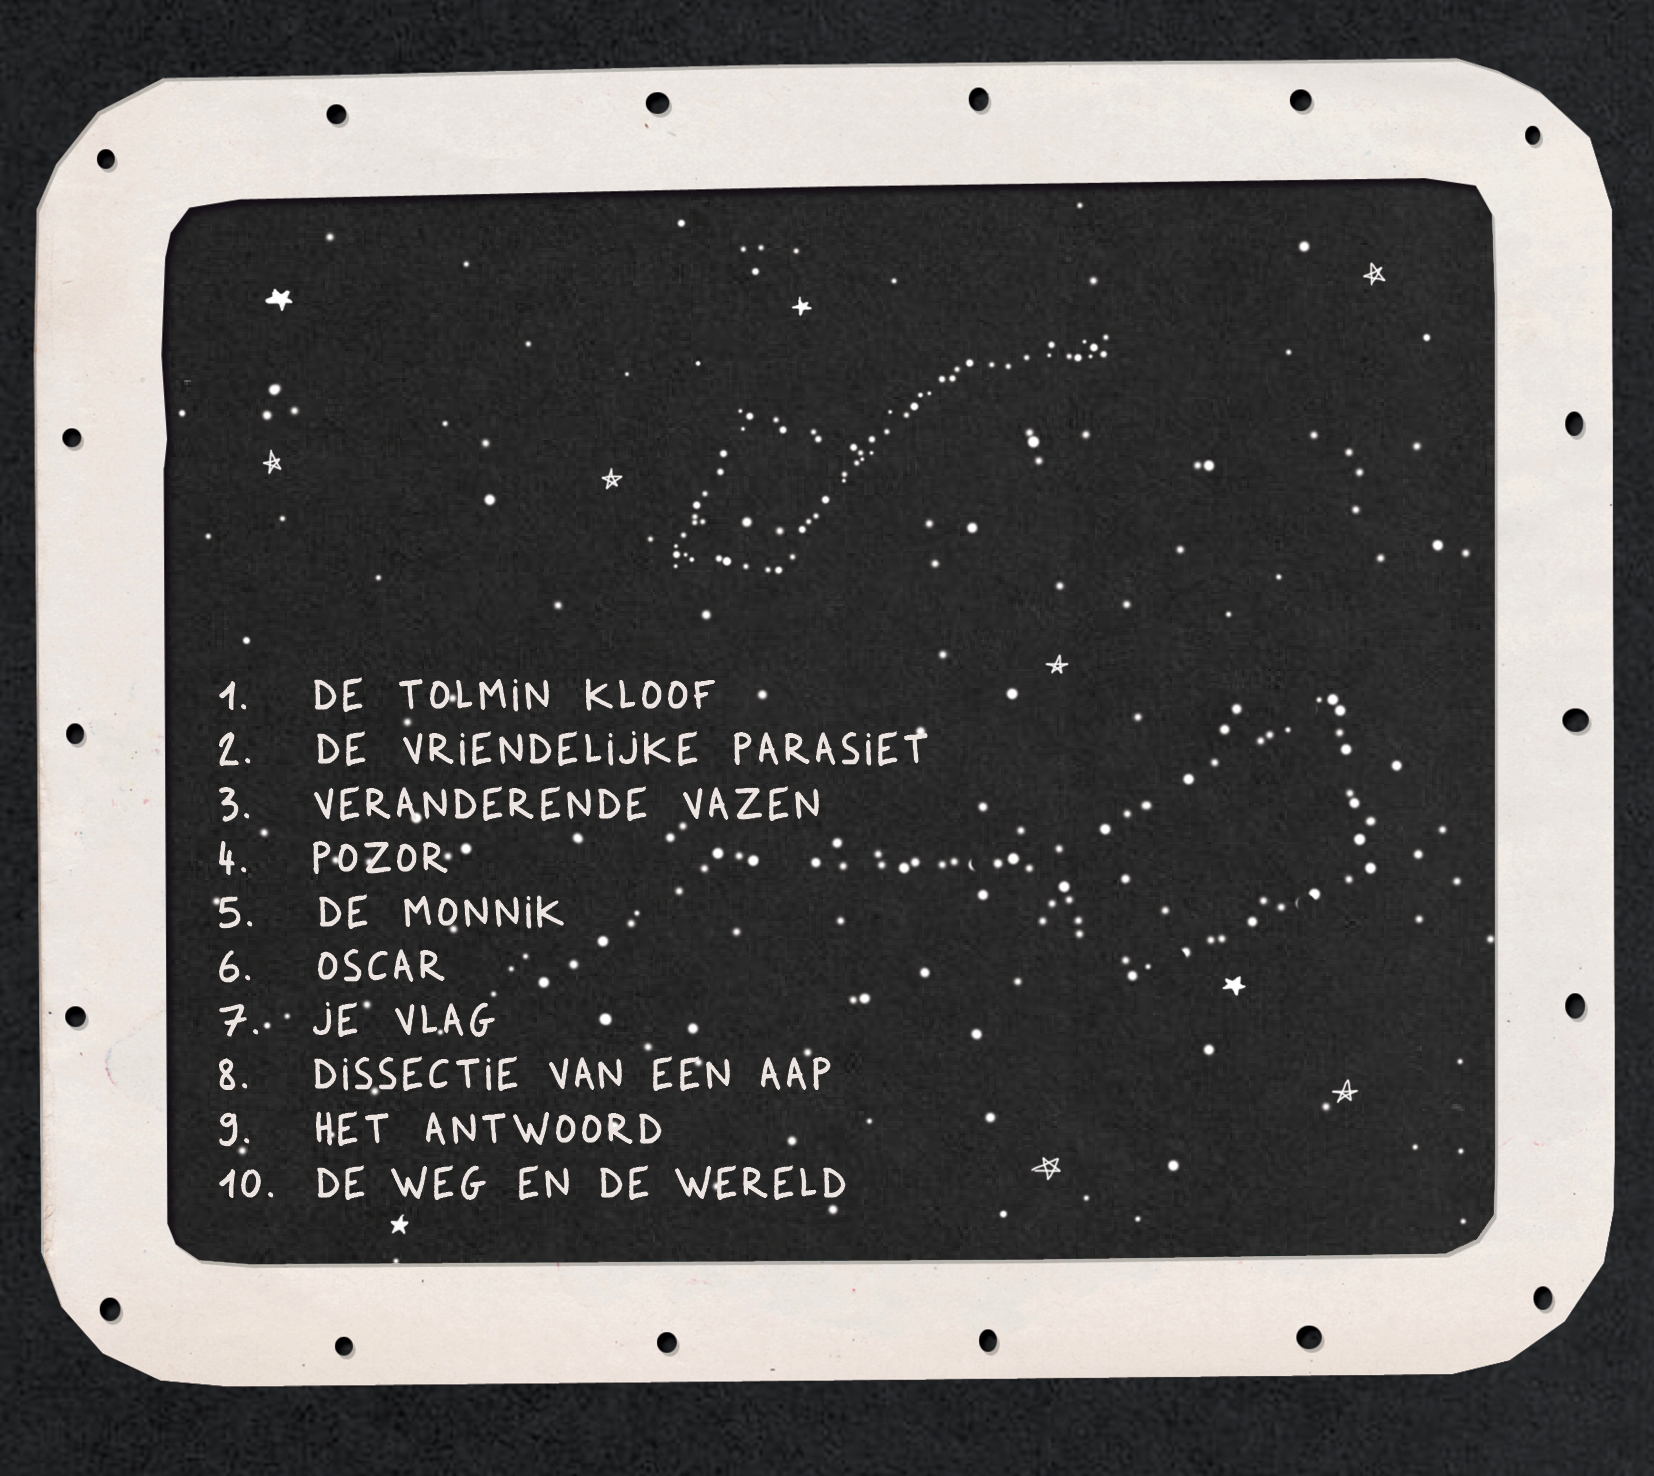 1. DE TOLMiN KLOOF
2. DE VRiENDELiJKE PARASiET
3. VERANDERENDE VAZEN
4. POZOR
5. DE MONNiK
6. OSCAR
7. JE VLAG
8. DiSSECTiE VAN EEN AAP
9. HET ANTWOORD
10. DE WEG EN DE WERELD